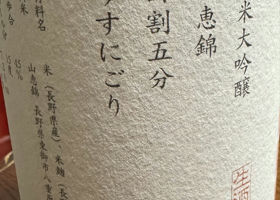 米大吟醸
恵錦
割五分
すにごり
生酒
料名 米(長野県産)、米麹(長
45%
山恵錦 長野県東御市八重原